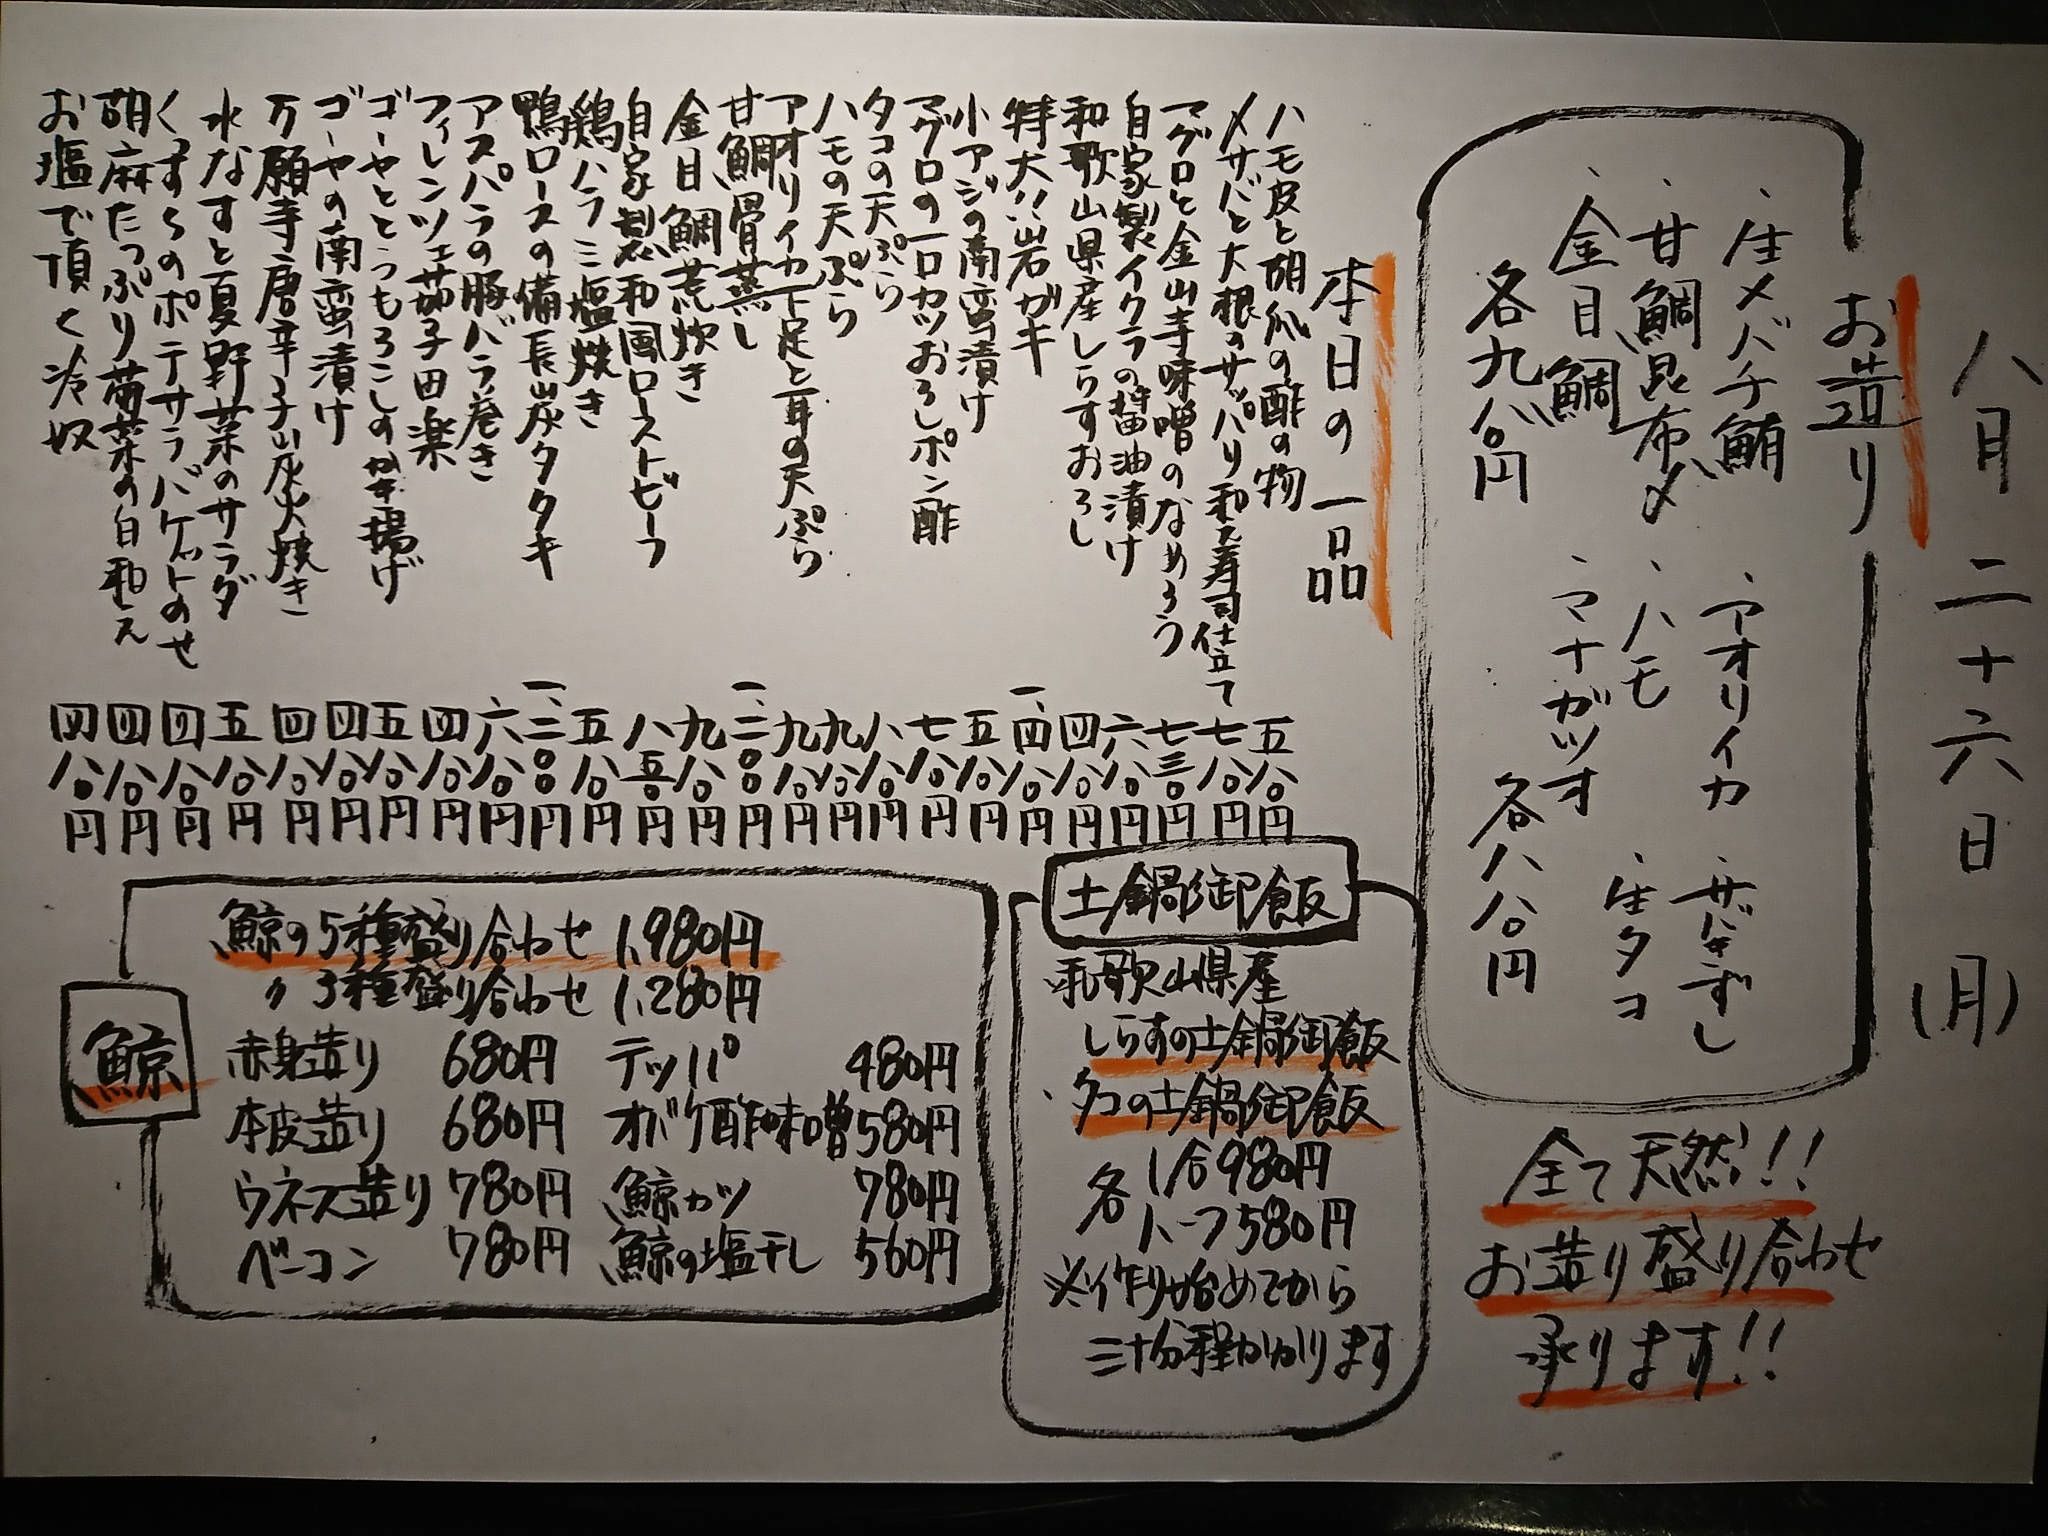 八月二十六日(月)
お造り
、生メバチ鮪
、甘鯛昆布〆
、金目鯛
各九八〇円
、アオリイカ
、ハモ
、マナガツオ
、サバきずし
、生タコ
各八八〇円
全て天然!!
お造り盛り合わせ
承ります!!
本日の一品
ハモ皮と胡瓜の酢の物 五八〇円
〆サバと大根のサッパリ和え寿司仕立て 七八〇円
マグロと金山寺味噌のなめろう 七三〇円
自家製イクラの醤油漬け 六八〇円
和歌山県産しらすおろし 四八〇円
特大!!岩ガキ 一、四八〇円
小アジの南蛮漬け 五八〇円
マグロの一口カツおろしポン酢 七八〇円
タコの天ぷら 八八〇円
ハモの天ぷら 九八〇円
アオリイカ下足と耳の天ぷら 九八〇円
甘鯛骨蒸し 一、二〇〇円
金目鯛荒炊き 九八〇円
自家製和風ローストビーフ 八五〇円
鶏ハラミ塩焼き 五八〇円
鴨ロースの備長炭タタキ 一、二〇〇円
アスパラの豚バラ巻き 六八〇円
フィレンツェ茄子田楽 四八〇円
ゴーヤととうもろこしのかき揚げ 五八〇円
ゴーヤの南蛮漬け 四八〇円
万願寺唐辛子炭火焼き 四八〇円
水なすと夏野菜のサラダ 五八〇円
くずくのポテサラバケットのせ 四八〇円
胡麻たっぷり菊菜の白和え 四八〇円
お塩で頂く冷奴 四八〇円
土鍋御飯
和歌山県産
しらすの土鍋御飯
タコの土鍋御飯
各 1合980円
ハーフ580円
※作り始めてから
三十分程かかります
鯨
鯨の5種盛り合わせ 1,980円
〃 3種盛り合わせ 1,280円
赤身造り 680円 テッパ 480円
本皮造り 680円 オバケ酢味噌 580円
ウネス造り 780円 鯨カツ 780円
ベーコン 780円 鯨の塩干し 560円